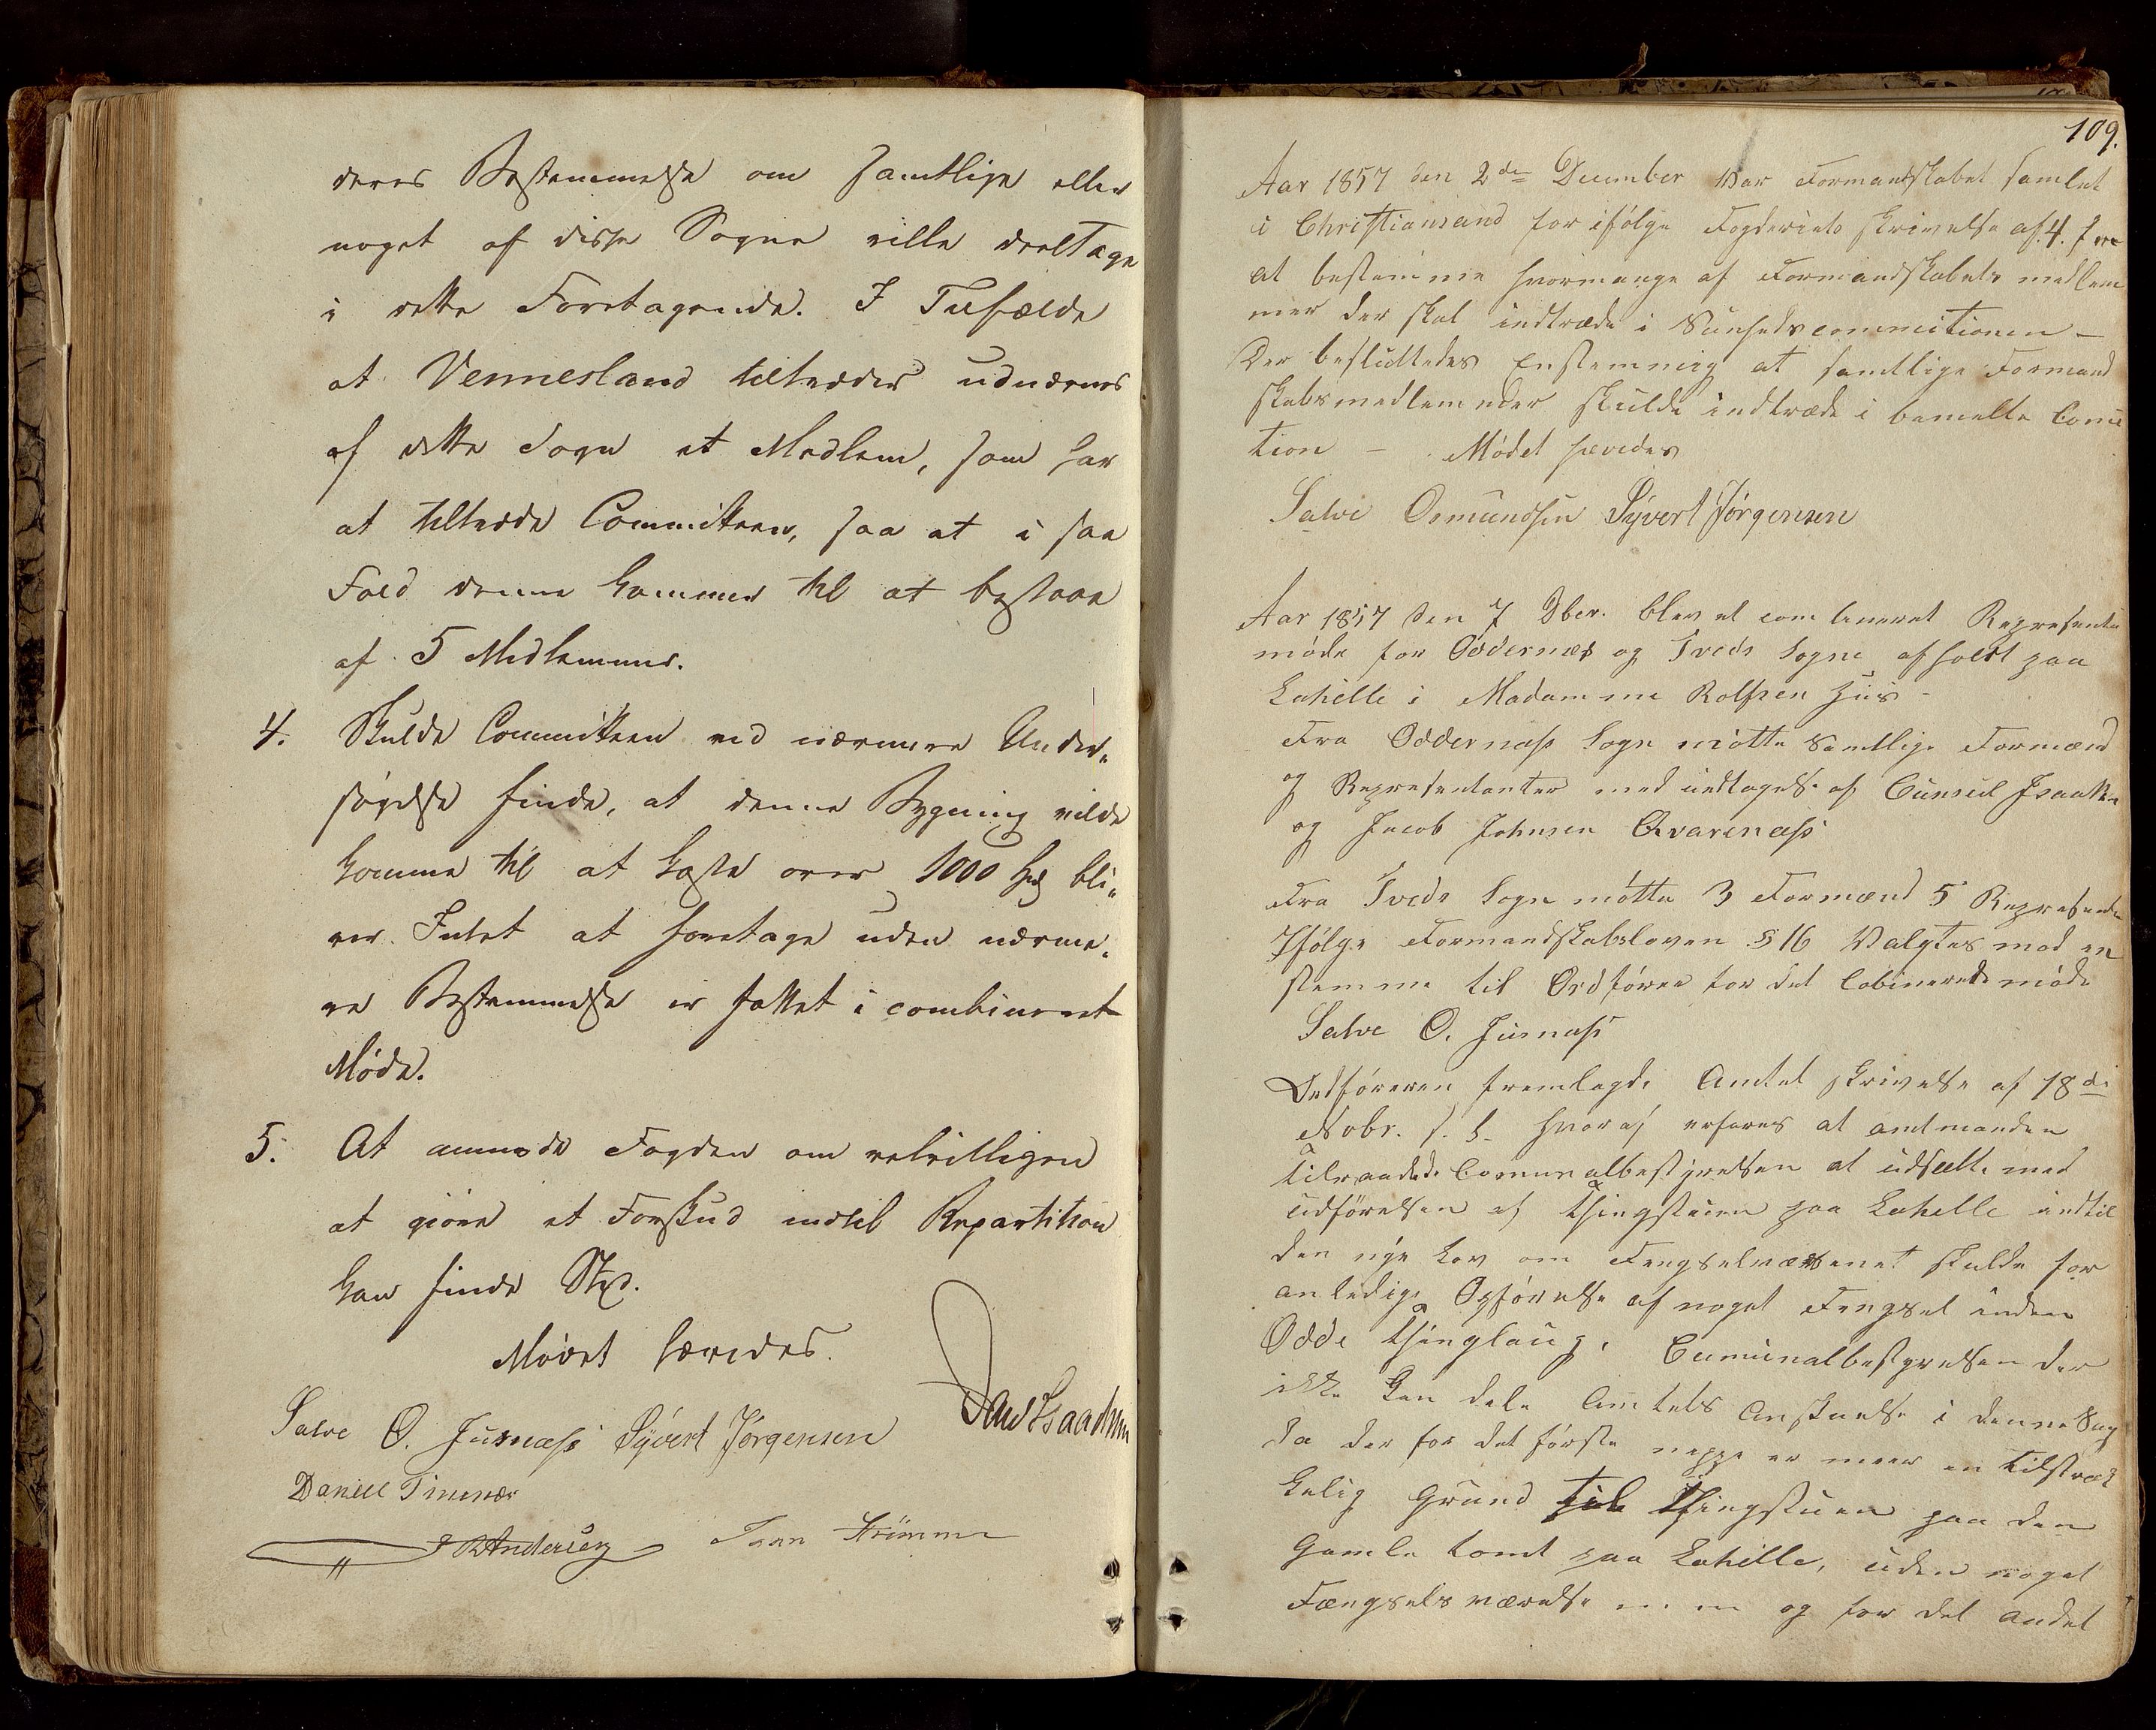 deres Bestemmelse om samtlige eller
noget af disse Sogne ville deeltage
i dette Foretagende. I Tilfælde
at Vennesland tiltræder udnævnes
af dette Sogn et Medlem, som har
at tiltræde Committeen, saa at i saa
Fald denne kommer til at bestaae
af 5 Medlemmer.
4. Skulde Committeen ved nærmere Under„
søgelse finde, at denne Bygning vilde
komme til at koste over 1000 Spd bli„
ver Intet at foretage uden nærme„
re Bestemmelse er fattet i combineret
Møde.
5. At anmode Fogden om velvilligen
at giöre et Forskud indtil Repartition
kan finde Sted.
Mødet hævedes.
Salve O. Jusnæss Syvert Jørgensen Dan Isaachsen
Daniel Timenæs
Andersen
109.
Aar 1857 den 2de December Var Formandskabet samlet
i Christiansand for ifølge Fogderiets skrivelse af 4.
at bestemme hvormange af Formandskabets medlem
mer der skal indtræde i Sunhedscommitionen —
Der besluttedes Enstemmig at samtlige Formand
skabsmedlemmer skulde indtræde i bemelte Comi
tion — Mødet hævedes
Salve Osmundsen Syvert Jørgensen
Aar 1857 den 7 Dber. blev et combineret Represente
møde for Oddernæs og Tveds Sogne afholdt paa
Lahelle i Madamme Rolfsen Huus -
Fra Oddernæss Sogn møtte Samtlige Formænd
og Representanter med undtagelse af Cunsul Isaaksen
og Jacob Johnsen Qvarenæss
Fra Tveds Sogn møtte 3 Formænd 5 Represente
Ifølge Formandskabsloven § 16 Valgtes med en
stemme til Ordfører for det Cobinerede møde
Salve O. Jusnæss
Ordføreren fremlagde Amtet skrivelse af 18de
Nobr. f. hvoraf erfares at amtmanden
tilraadede Comunalbestyrelsen at udsætte med
udførelsen af thingstuen paa Lahelle indtil
den nye Lov om Fengselvæsenet skulde for
anledige Opførelse af noget Fengsel inden
Odde thinglaug. Cumunalbestyrelsen der
ikke kan dele Amtets Anskuelse i denne Sag
da der for det første neppe er meer en tilstræk
kelig Grund til thingstuen paa den
Gamle tomt paa Lahelle, uden noget
Fængselsværelse og for det andet